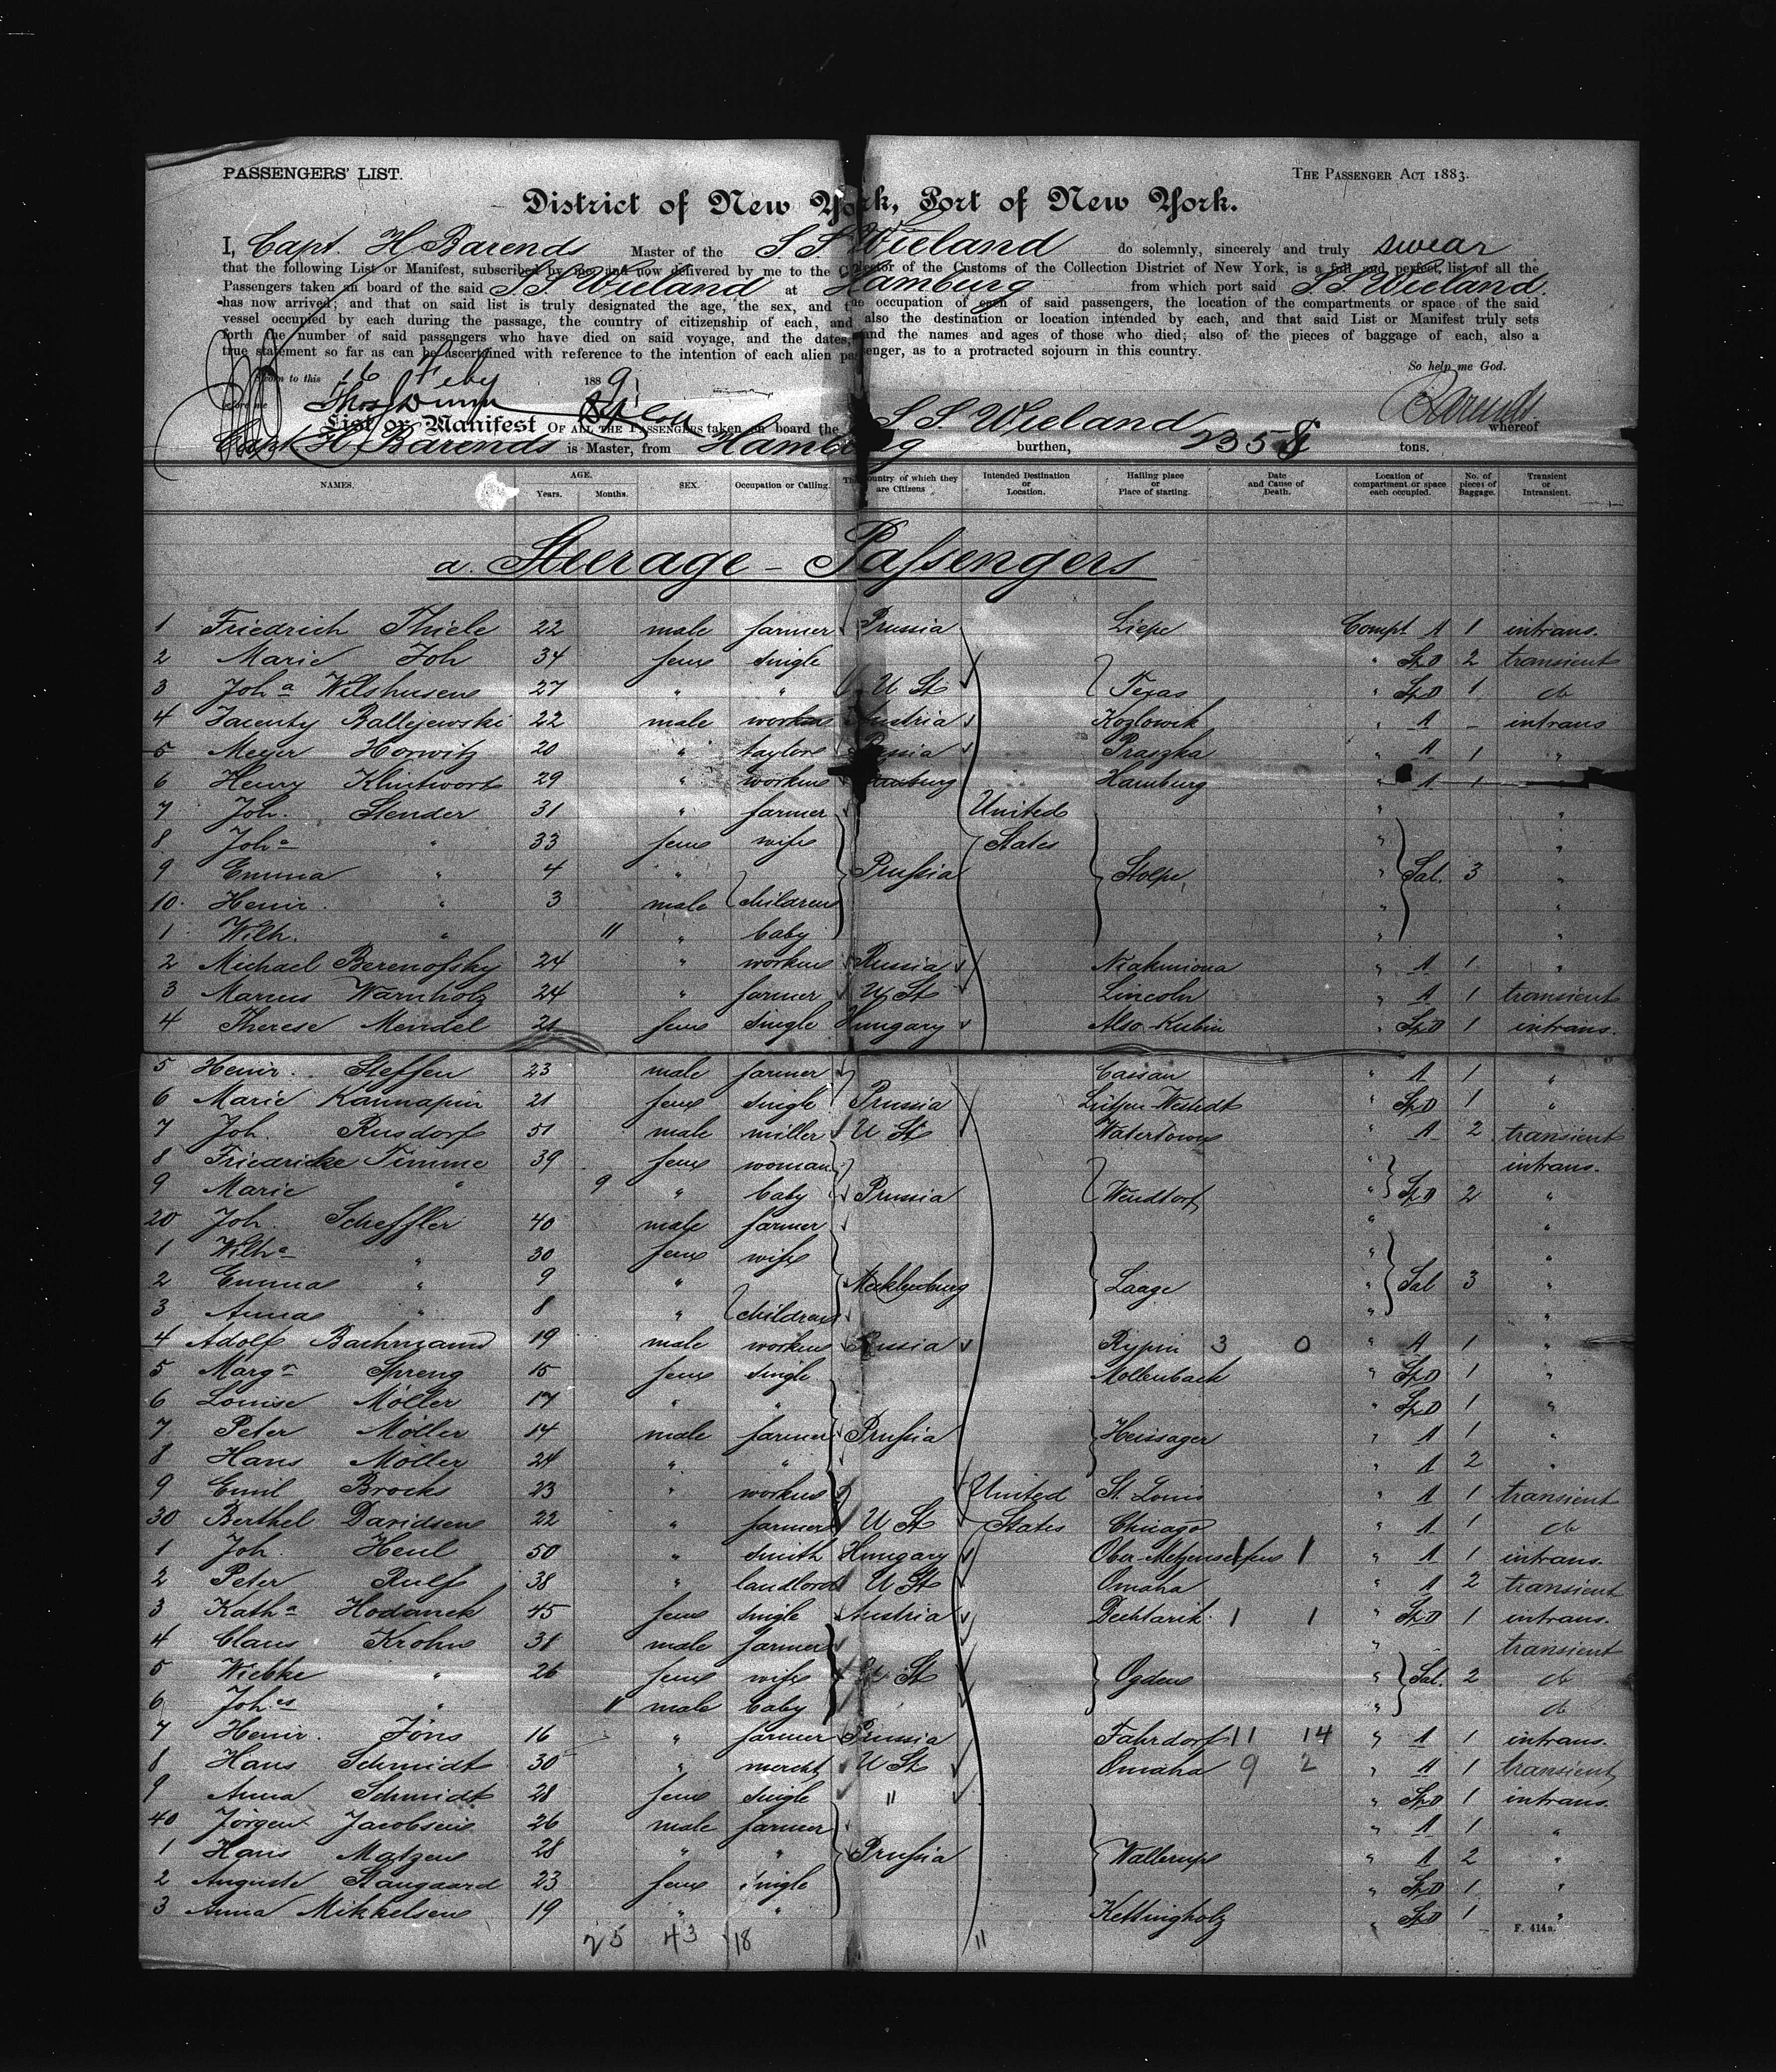 PASSENGERS' LIST.
THE PASSENGER ACT 1883.
District of New York, Port of New York.
I, Capt. H Barends Master of the S. S. Wieland do solemnly, sincerely and truly swear
that the following List or Manifest, subscribed by me, and now delivered by me to the Collector of the Customs of the Collection District of New York, is a full and perfect list of all the
Passengers taken on board of the said S S Wieland at Hamburg from which port said S S Wieland
has now arrived; and that on said list is truly designated the age, the sex, and the occupation of each of said passengers, the location of the compartments or space of the said
vessel occupied by each during the passage, the country of citizenship of each, and also the destination or location intended by each, and that said List or Manifest truly sets
forth the number of said passengers who have died on said voyage, and the dates, and the names and ages of those who died; also of the pieces of baggage of each, also a
true statement so far as can be ascertained with reference to the intention of each alien passenger, as to a protracted sojourn in this country.
Sworn to this 16 Feby 1889
So help me God.
before me Thos Dunn
Barends
List or Manifest OF ALL THE PASSENGERS taken on board the S. S. Wieland whereof
Capt H Barends is Master, from Hamburg burthen, 2358 tons.
NAMES. AGE. Years. Months. SEX. Occupation or Calling. The Country of which they are Citizens Intended Destination or Location. Hailing place or Place of starting. Date and Cause of Death. Location of compartment or space each occupied. No. of pieces of Baggage. Transient or Intransient.
a. Steerage - Passengers
1 Friedrich Thiele 22 male farmer Prussia Liepe Compt A 1 intrans.
2 Marie Joh 34 fem single " Sp.D 2 transient
3 Joha Wilshusen 27 " " U St Texas " Sp.D 1 do
4 Ballejewski 22 male workm Austria Kozlowik " A - intrans
5 Meyer Horwitz 20 " taylor Russia Praszka " A 1 "
6 Henry Klintworth 29 " workm Hamburg Hamburg " A 1 "
7 Joh. Stender 31 " farmer United " "
8 Joha " 33 fem wife States " "
9 Emma " 4 " Prussia Stolpe " Sal. 3 "
10. Heinr. " 3 male children " "
1 Wilh. " 11 " baby " "
2 Michael Berenofsky 24 " workm Russia " A 1 "
3 Marcus Warnholz 24 " farmer U St Lincoln " A 1 transient
4 Therese Mendel 21 fem single Hungary Also Kubin " Sp.D 1 intrans.
5 Heinr. Steffen 23 male farmer Cassan " A 1 "
6 Marie Kannapin 21 fem single Prussia Lütjen Westedt " Sp.D 1 "
7 Joh. Rusdorf 51 male miller U St Watertown " A 2 transient
8 Friedricke Timme 39 fem woman " intrans.
9 Marie " 9 " baby Prussia Wendtorf " Sp.D 2 "
20 Joh. Scheffler 40 male farmer " "
1 Wilha " 30 fem wife " "
2 Emma " 9 " Mecklenburg Laage " Sal 3 "
3 Anna " 8 " children " "
4 Adolf Bachmann 19 male workm Russia Rypin 3 0 " A 1 "
5 Marga Spreng 15 fem single Mollenbach " Sp.D 1 "
6 Louise Möller 17 " " " Sp.D 1 "
7 Peter Möller 14 male farmer Prussia Heissager " A 1 "
8 Hans Möller 24 " " " A 2 "
9 Emil Brocks 23 " workm United St. Louis " A 1 transient
30 Berthel Davidsen 22 " farmer U St States Chicago " A 1 do
1 Joh. Henl 50 " smith Hungary Ober-Metzenseifen 1 " A 1 intrans.
2 Peter Rulf 38 " landlord U St Omaha " A 2 transient
3 Katha Hodanek 45 fem single Austria Dechtarik 1 1 " Sp.D 1 intrans.
4 Claus Krohn 31 male farmer " transient
5 Wiebke " 26 fem wife U St Ogden " Sal. 2 do
6 Johes " 11 male baby " do
7 Heinr. Jöns 16 " farmer Prussia Fahrdorf 11 14 " A 1 intrans.
8 Hans Schmidt 30 " mercht U St Omaha 9 2 " A 1 transient
9 Anna Schmidt 28 fem single " " Sp.D 1 intrans.
40 Jörgen Jacobsen 26 male farmer " A 1 "
1 Hans Matzen 28 " " Prussia Wallerup " A 2 "
2 Auguste Staugaard 23 fem single " Sp.D 1 "
3 Anna Mikkelsen 19 " " Kettingholz " Sp.D 1 "
25 43 18 11
F. 414a.